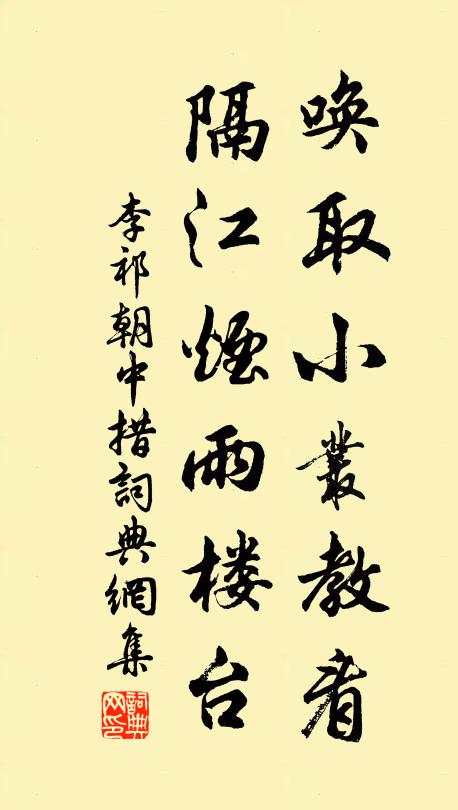 唤取小叢教看
隔江煙雨楼台
李祁朝中措詞典網集
詞典网印